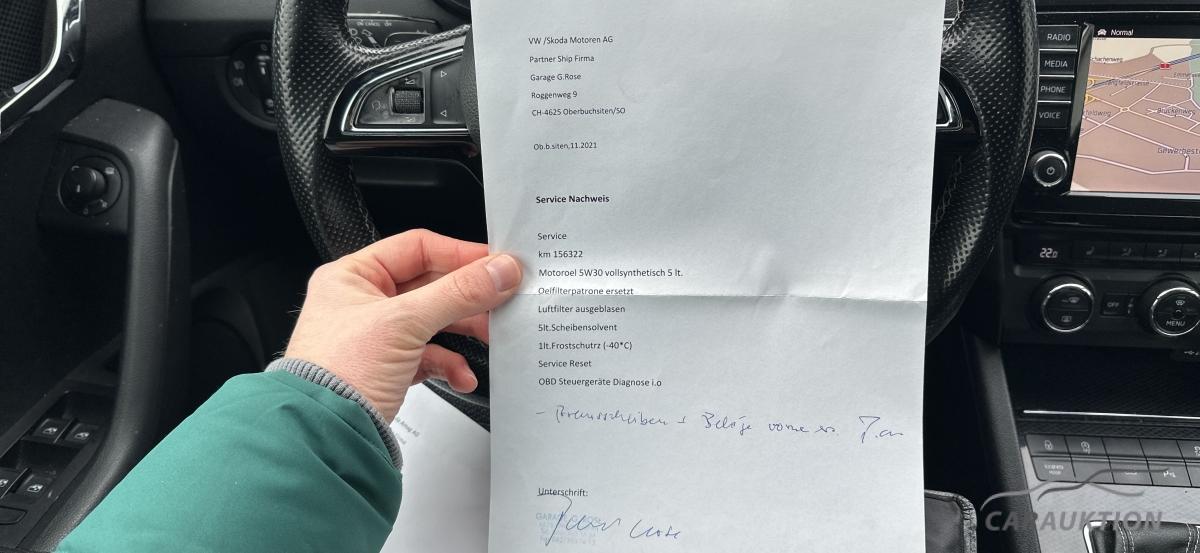 VW /Skoda Motoren AG
Partner Ship Firma
Garage G.Rose
Roggenweg 9
CH-4625 Oberbuchsiten/SO
Ob.b.siten,11.2021
Service Nachweis
Service
km 156322
Motoroel 5W30 vollsynthetisch 5 lt.
Oelfilterpatrone ersetzt
Luftfilter ausgeblasen
5lt.Scheibensolvent
1lt.Frostschutrz (-40°C)
Service Reset
OBD Steuergeräte Diagnose i.o
- Bremsscheiben + Beläge vorne
Unterschrift:
RADIO
MEDIA
PHONE
VOICE
Normal
22.0
OFF
MENU
CARAUKTION